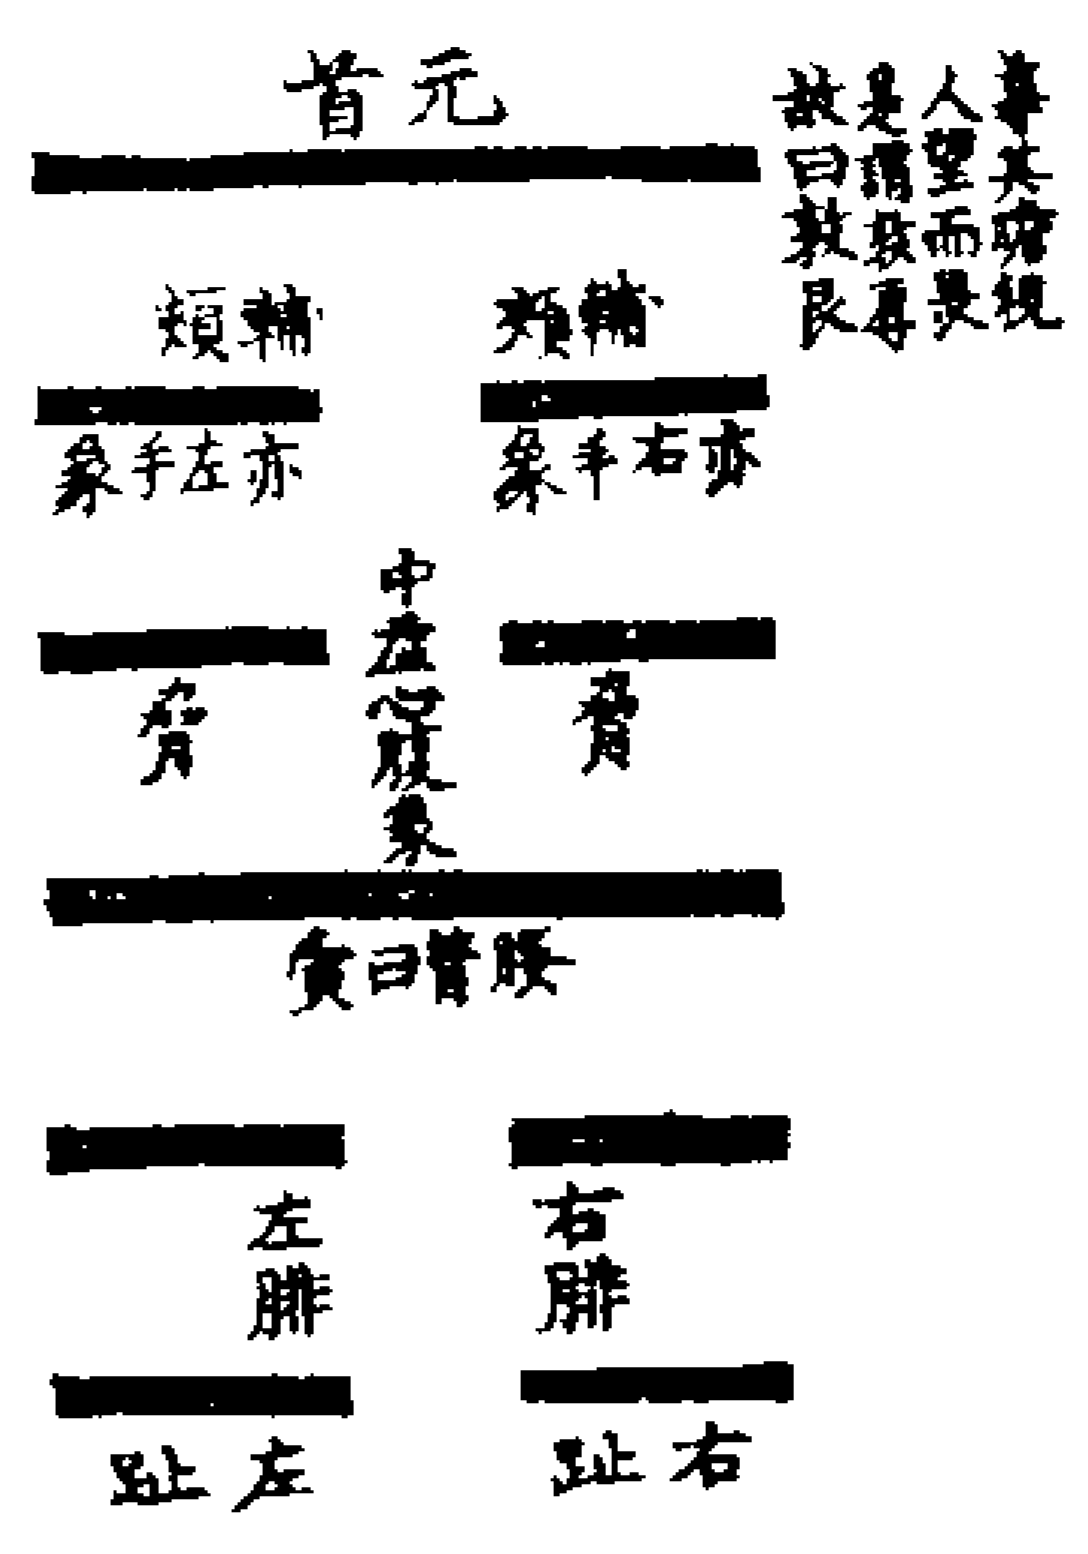 尊其瞻視
人望而畏
是謂敦厚
故曰敦艮
元首
輔頰
輔頰
亦右手象
亦左手象
中虛心腹象
脅
脅
腰膂曰夤
右腓
左腓
右趾
左趾